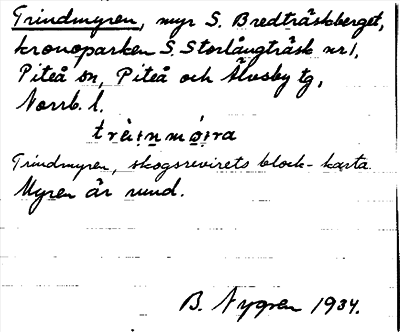 Trindmyren, myr S. Bredträskberget,
kronoparken S. Storlångträsk nr 1,
Piteå sn, Piteå och Älvsby tg,
Norrb. l.
Trindmyren, skogsrevirets block-karta.
Myren är rund.
B. Nygren 1934.